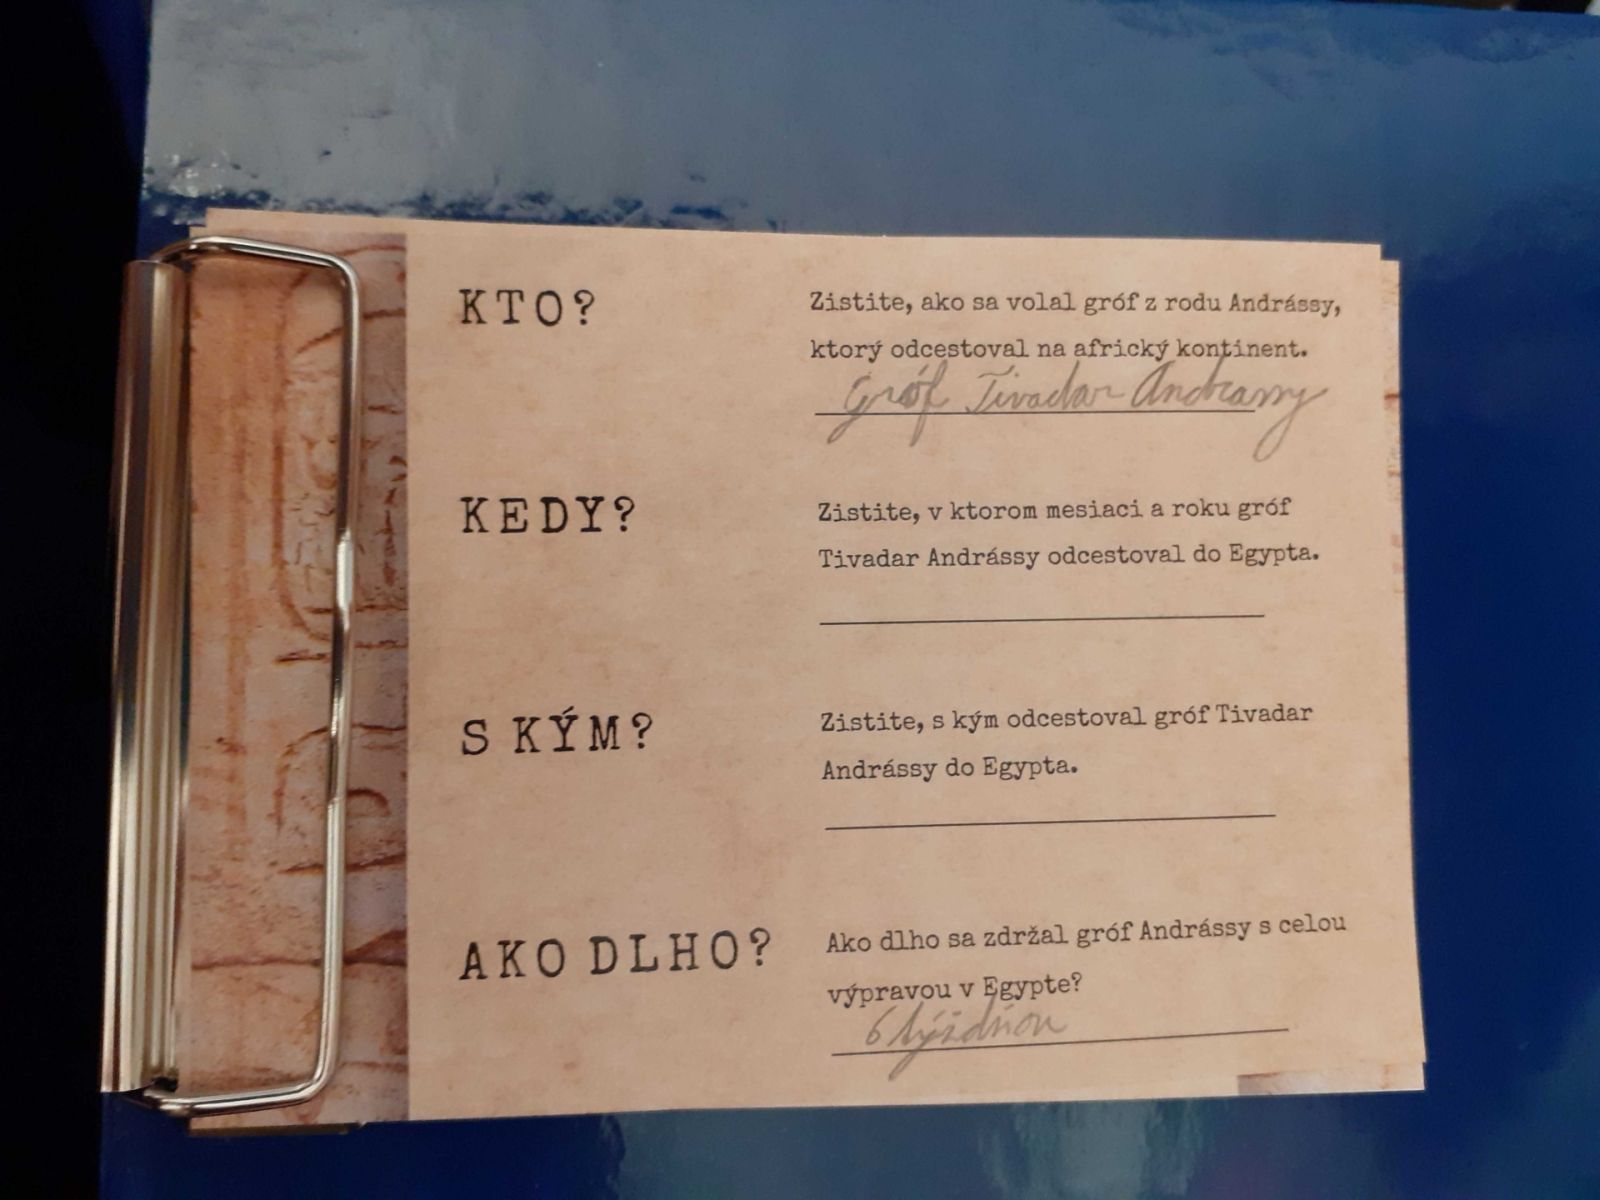 KTO?
Zistite, ako sa volal gróf z rodu Andrássy,
ktorý odcestoval na africký kontinent.
Gróf Tivadar Andrassy
KEDY?
Zistite, v ktorom mesiaci a roku gróf
Tivadar Andrássy odcestoval do Egypta.
S KÝM?
Zistite, s kým odcestoval gróf Tivadar
Andrássy do Egypta.
AKO DLHO?
Ako dlho sa zdržal gróf Andrássy s celou
výpravou v Egypte?
6 týždňou